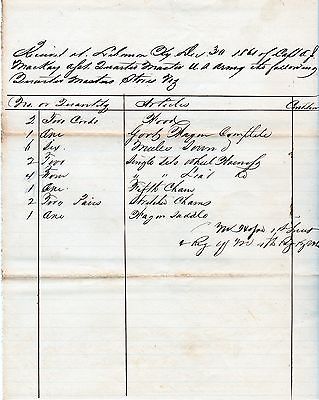 Received at Lebanon Ky Dec 30 1861 of Capt A. J.
Mackay Asst Quarter Master U S Army the following
Quarter Masters Stores Viz
No. or Quantity Articles
2 Two Cords Wood
1 One Govt Wagon Complete
6 Six Mules Sound
2 Two Single sets Wheel Harness
4 Four " " Lead Do
1 One Fifth Chain
2 Two Pairs Chains
1 One Wagon Saddle
1st Lieut
& Reg Qr M 4th Reg Ky